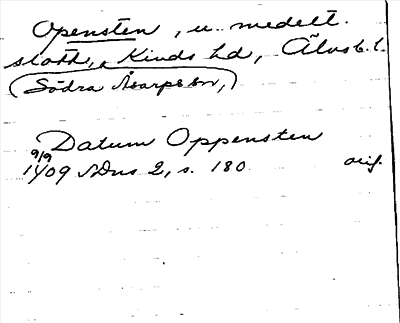 Opensten, u. medelt.
slott, Kinds hd, Älvsb. l.
(Södra Åsarps sn,)
Datum Oppensten
9/9
1409 SDns 2, s. 180 orig.